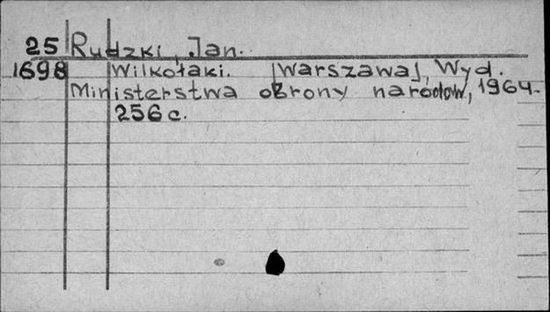 25 Rudzki, Jan.
1698 Wilkołaki. [Warszawa], Wyd.
Ministerstwa obrony narodow, 1964.
256 c.